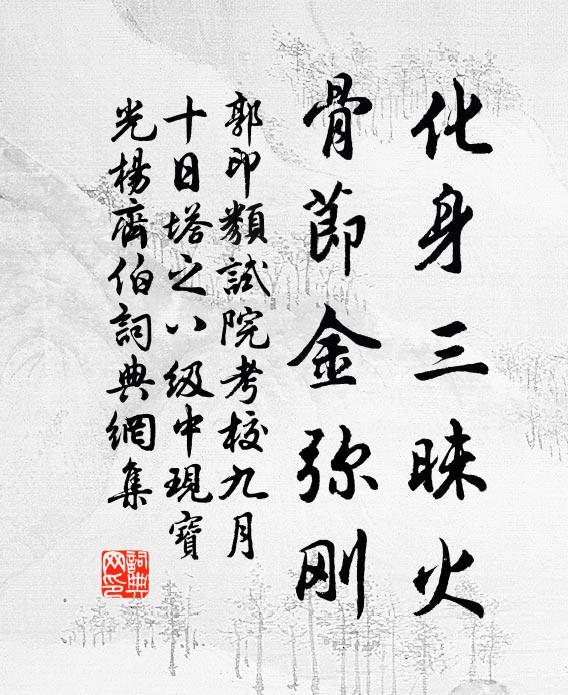 化身三昧火
骨節金弥刚
郭印類試院考校九月
十日塔之八级中現寶
光楊齊伯詞典網集
詞典网印